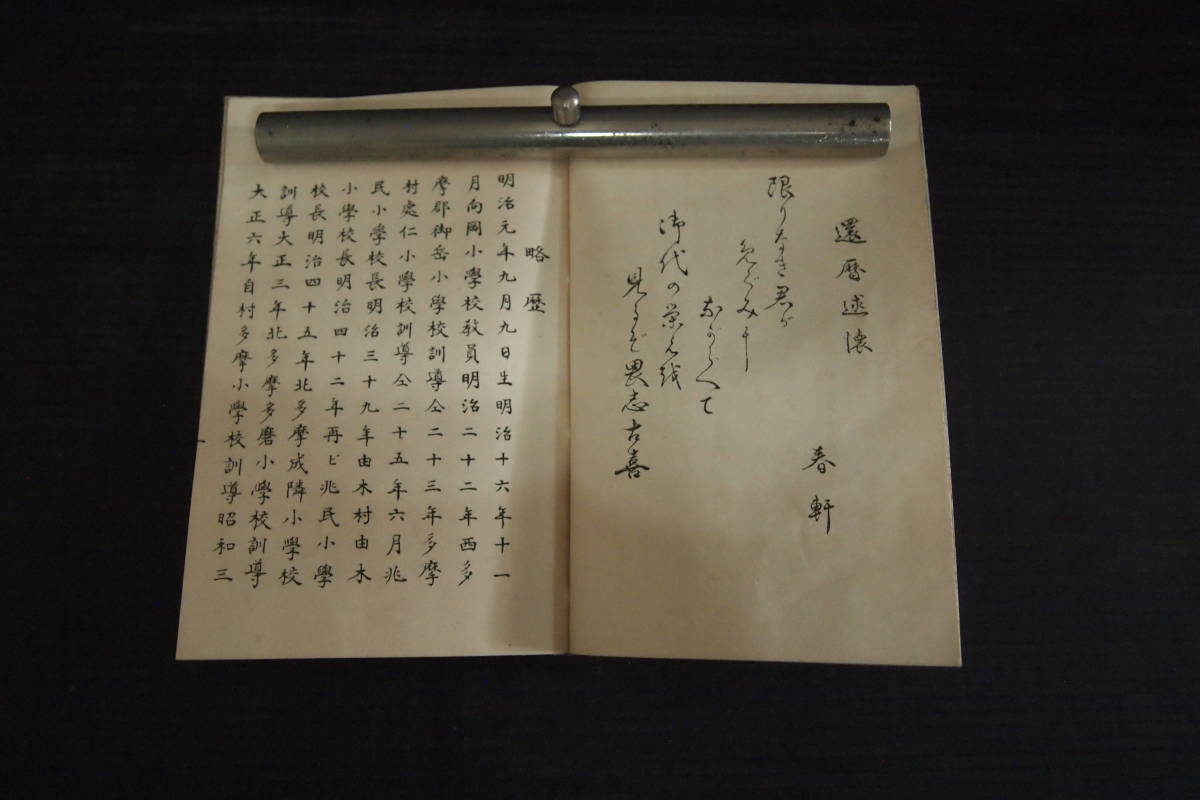 還暦述懐
春軒
限りなき君が
めぐみに
ながらへて
御代の栄え越
見るぞ畏志古喜
略歴
明治元年九月九日生明治十六年十一
月向岡小學校敎員明治二十二年西多
摩郡御岳小學校訓導仝二十三年多摩
村處仁小學校訓導仝二十五年六月兆
民小学校長明治三十九年由木村由木
小學校長明治四十二年再ビ兆民小學
校長明治四十五年北多摩成隣小學校
訓導大正三年北多摩多磨小學校訓導
大正六年自村多摩小學校訓導昭和三